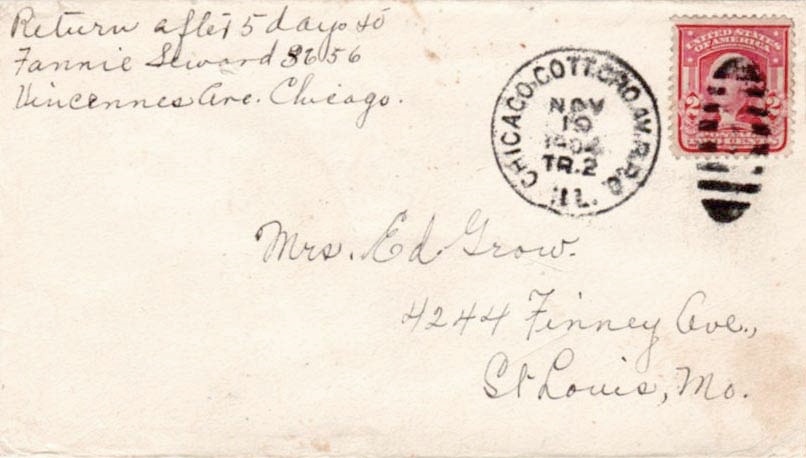 Return after 5 days to
Fannie Seward 3656
Vincennes Ave. Chicago.
CHICAGO-COTT.GRO.AV.R.P.O.
NOV
19
1904
TR.2
ILL.
UNITED STATES
OF AMERICA
2 2
TWO CENTS
Mrs. Ed Grow.
4244 Finney Ave.,
St Louis, Mo.